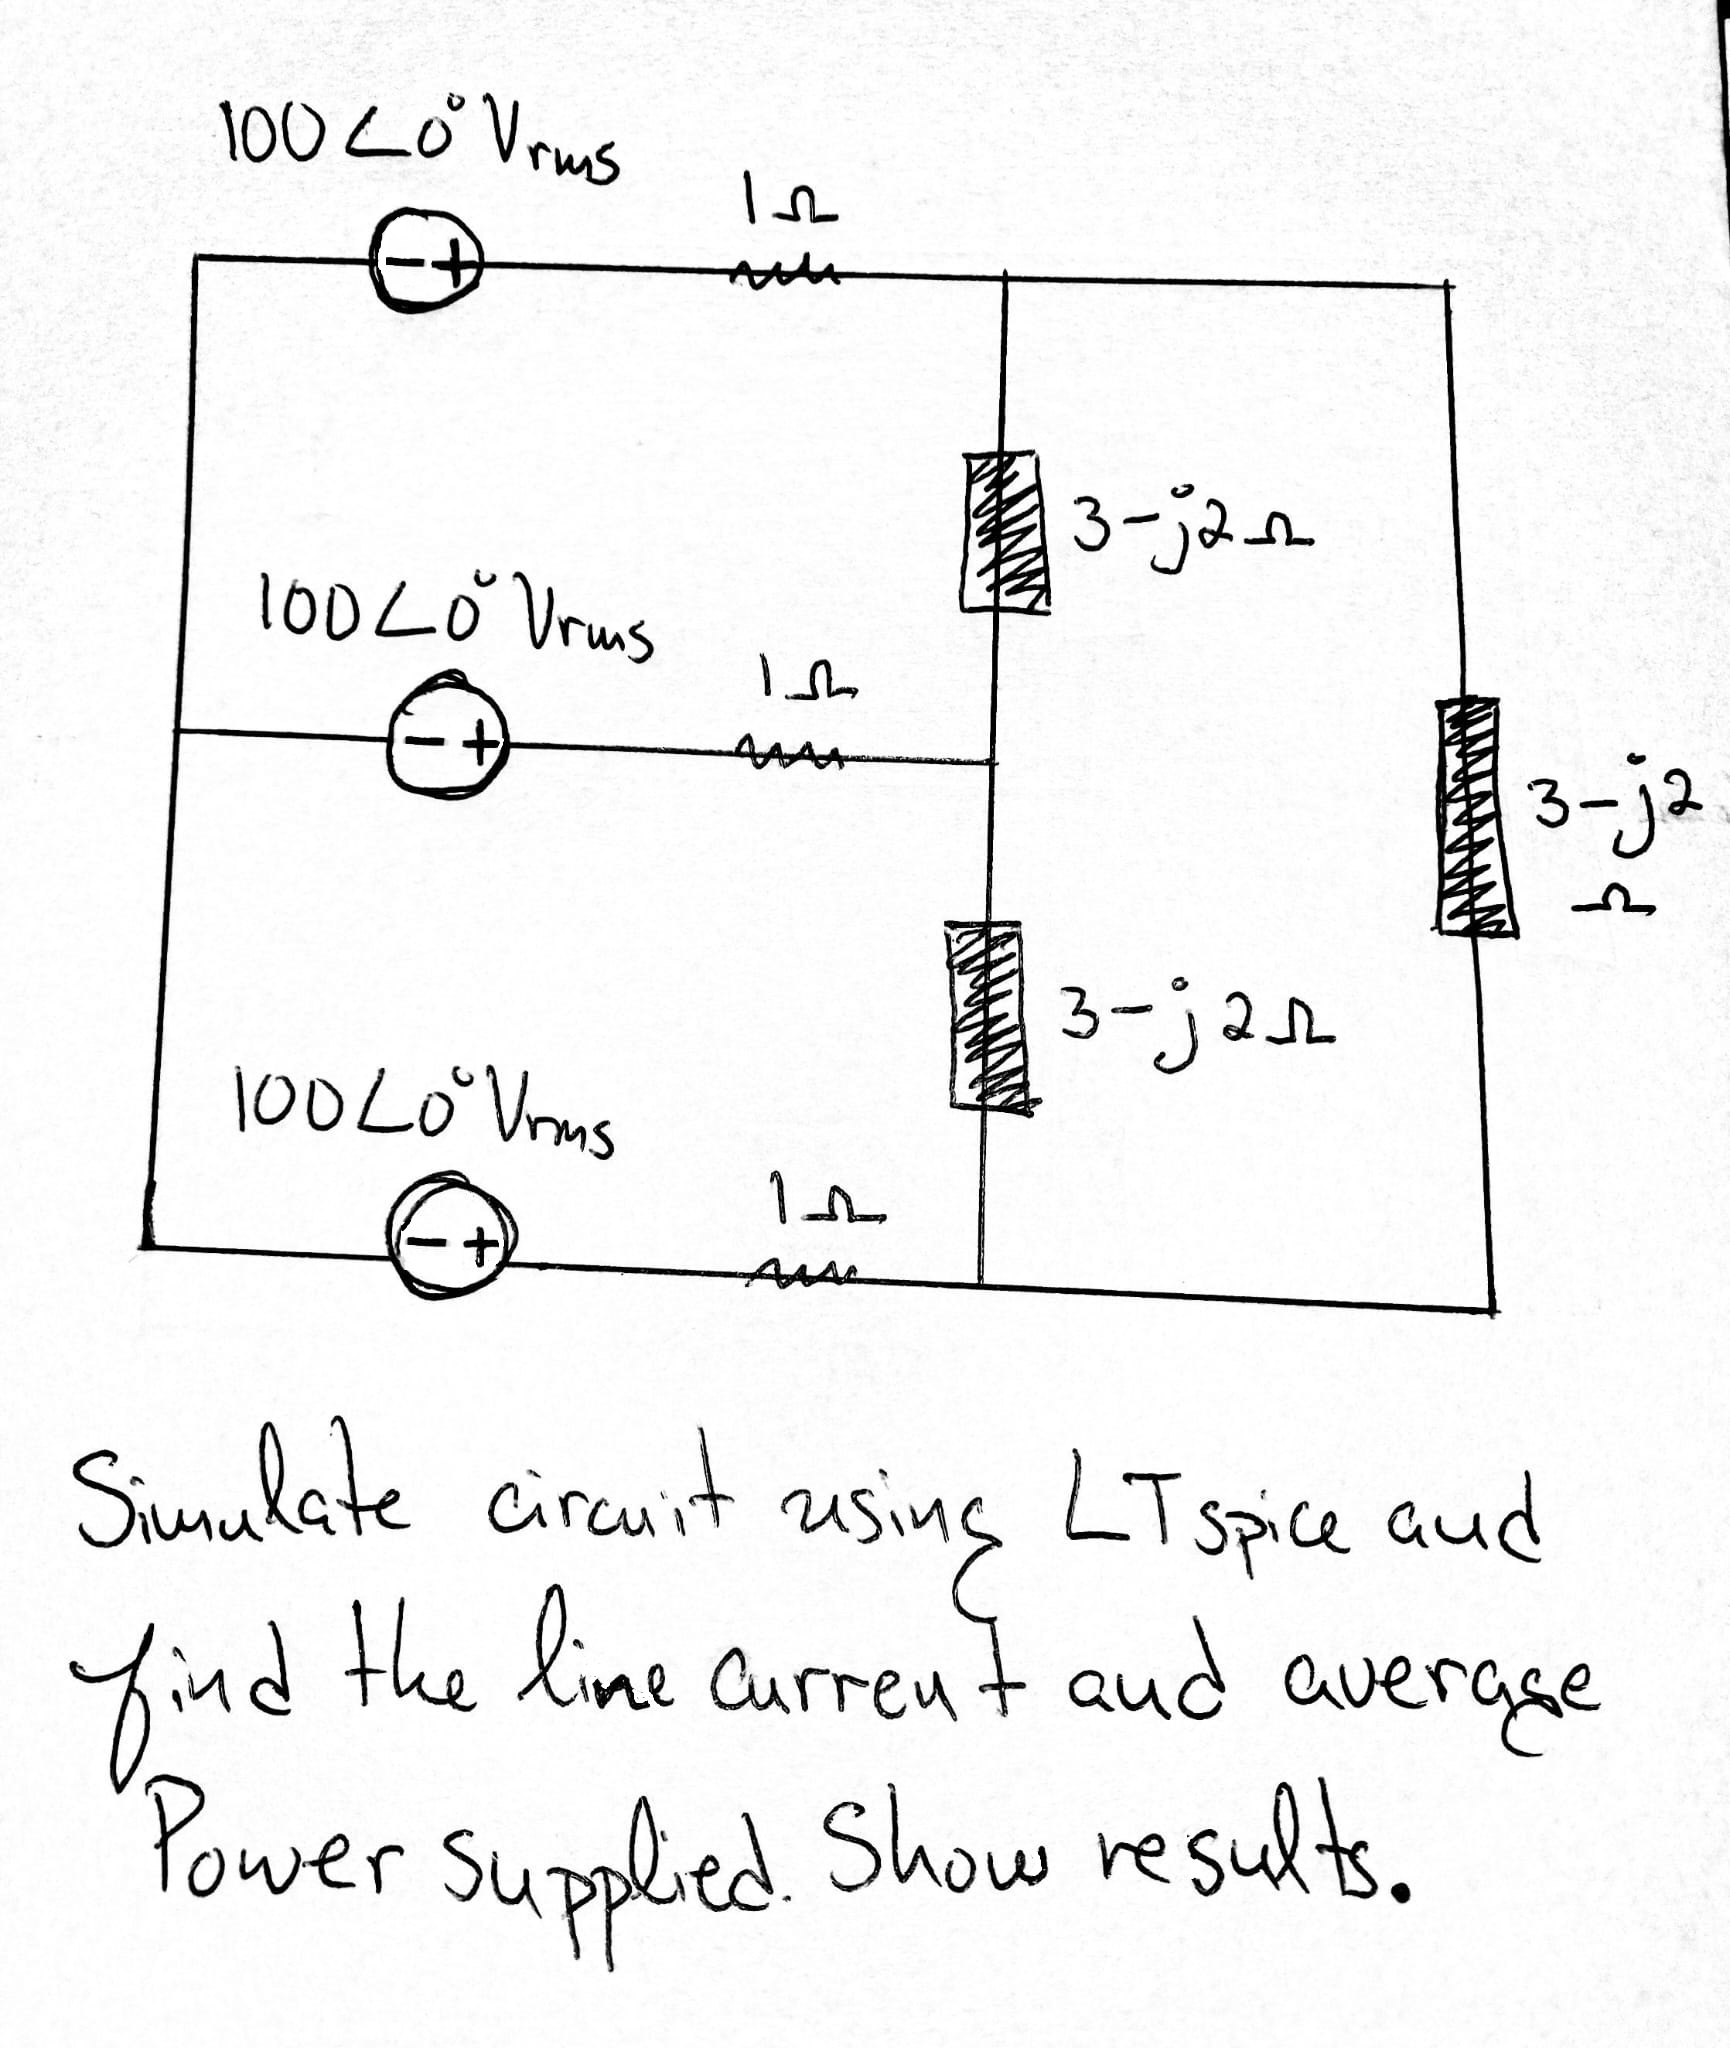 100∠0° Vrms
1Ω
- +
3-j2Ω
100∠0° Vrms
1Ω
- +
3-j2
Ω
3-j2Ω
100∠0° Vrms
1Ω
- +
Simulate circuit using LTspice and
find the line current and average
Power supplied. Show results.